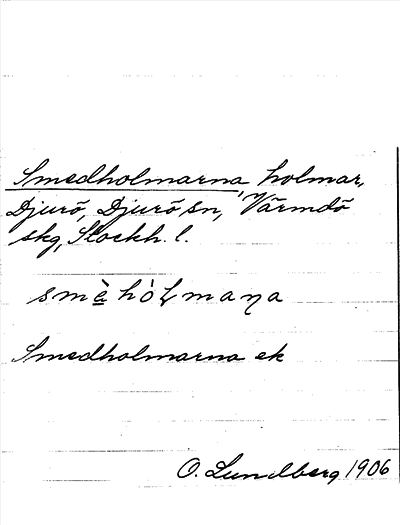 Smedholmarna, holmar,
Djurö, Djurö sn, Värmdö
skg, Stockh. l.
smèhòɫmaꞑa
Smedholmarna ek
O. Lundberg 1906